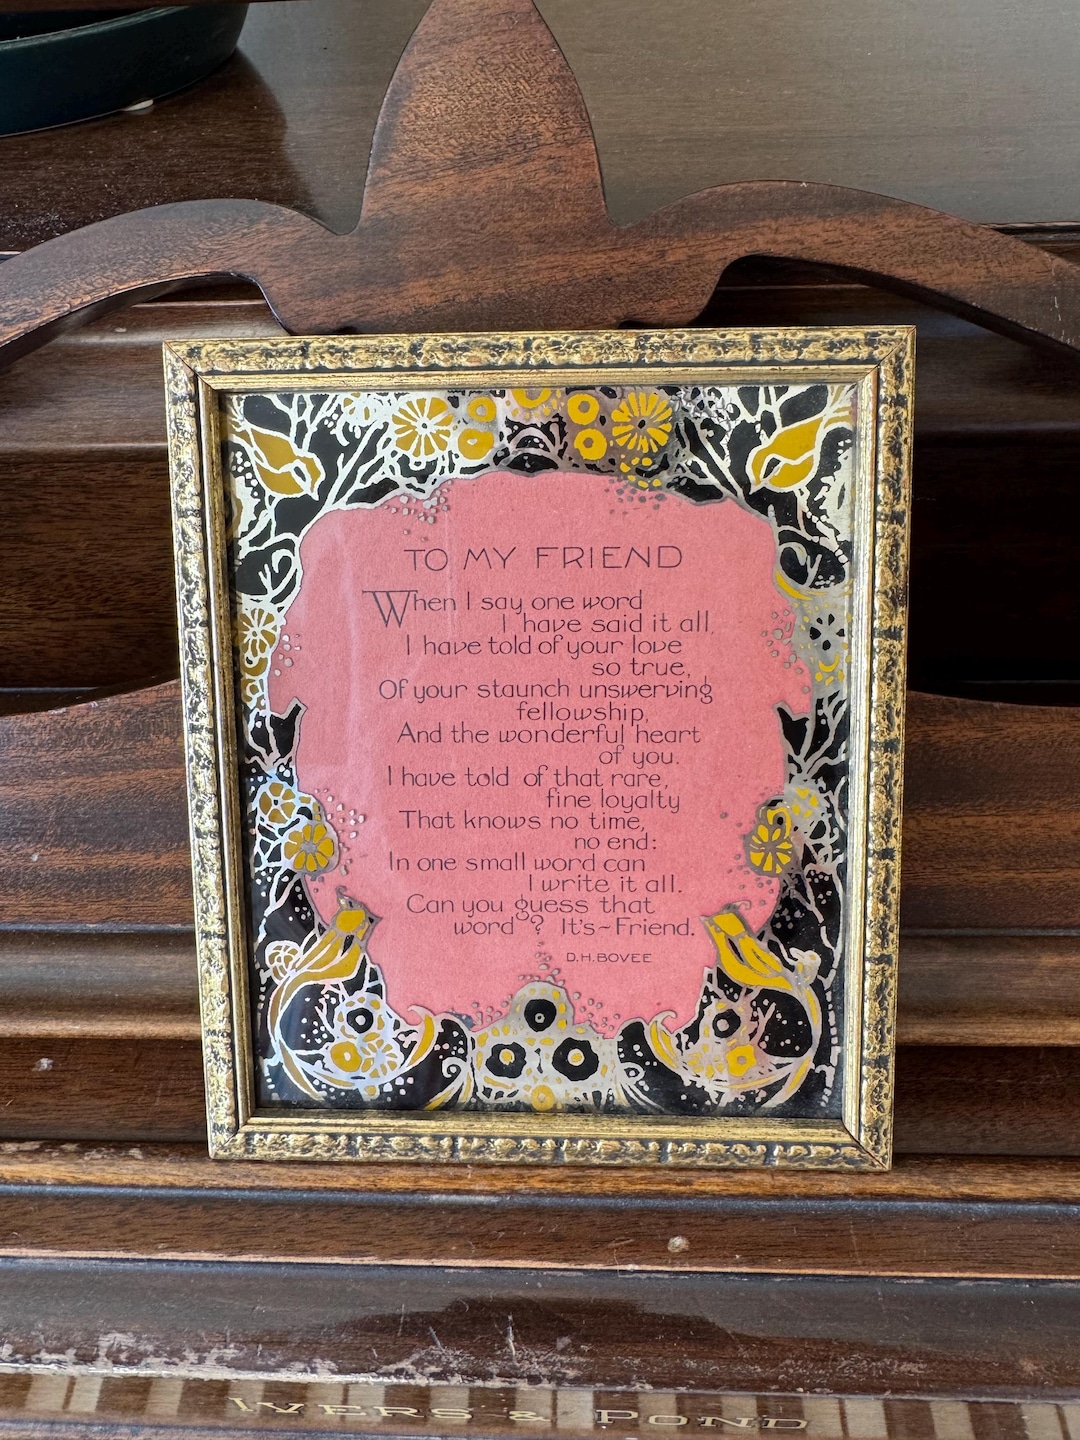 TO MY FRIEND
When I say one word
I have said it all,
I have told of your love
so true,
Of your staunch unswerving
fellowship,
And the wonderful heart
of you.
I have told of that rare,
fine loyalty
That knows no time,
no end:
In one small word can
I write it all.
Can you guess that
word? It's~Friend.
D.H.BOVEE
IVERS & POND